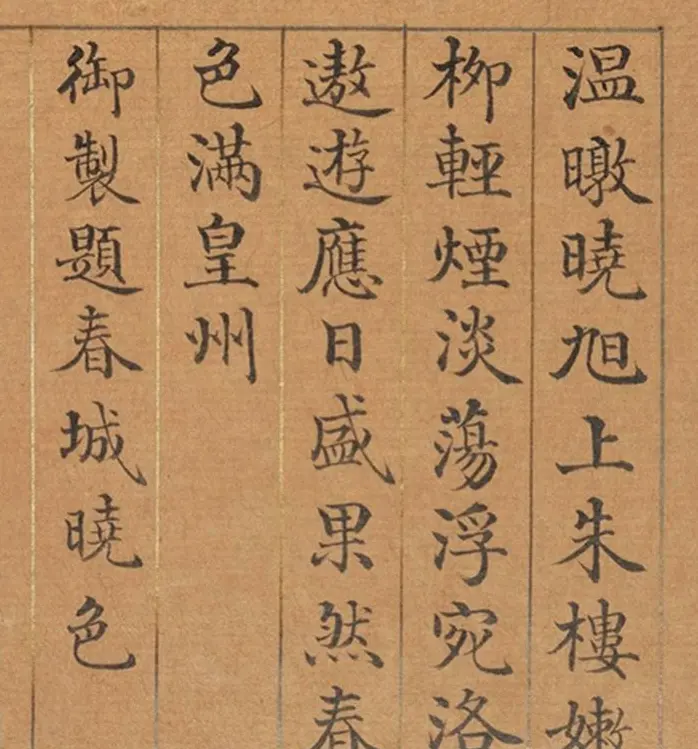 温暾曉旭上朱樓嫰
柳輕煙淡蕩浮宛洛
遨遊應日盛果然春
色滿皇州
御製題春城曉色